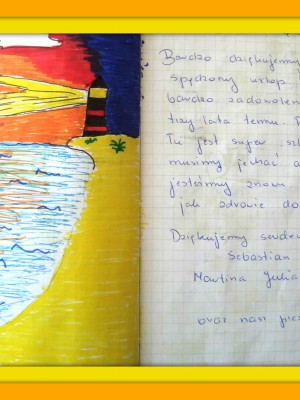 Bardzo dziękujemy
spędzony urlop
bardzo zadowolen
trzy lata temu.
Tu jest super,
musimy jechać a
jesteśmy znow
jak zdrowie do
Dziękujemy
Sebastian
Martina Julia
oraz nan pies